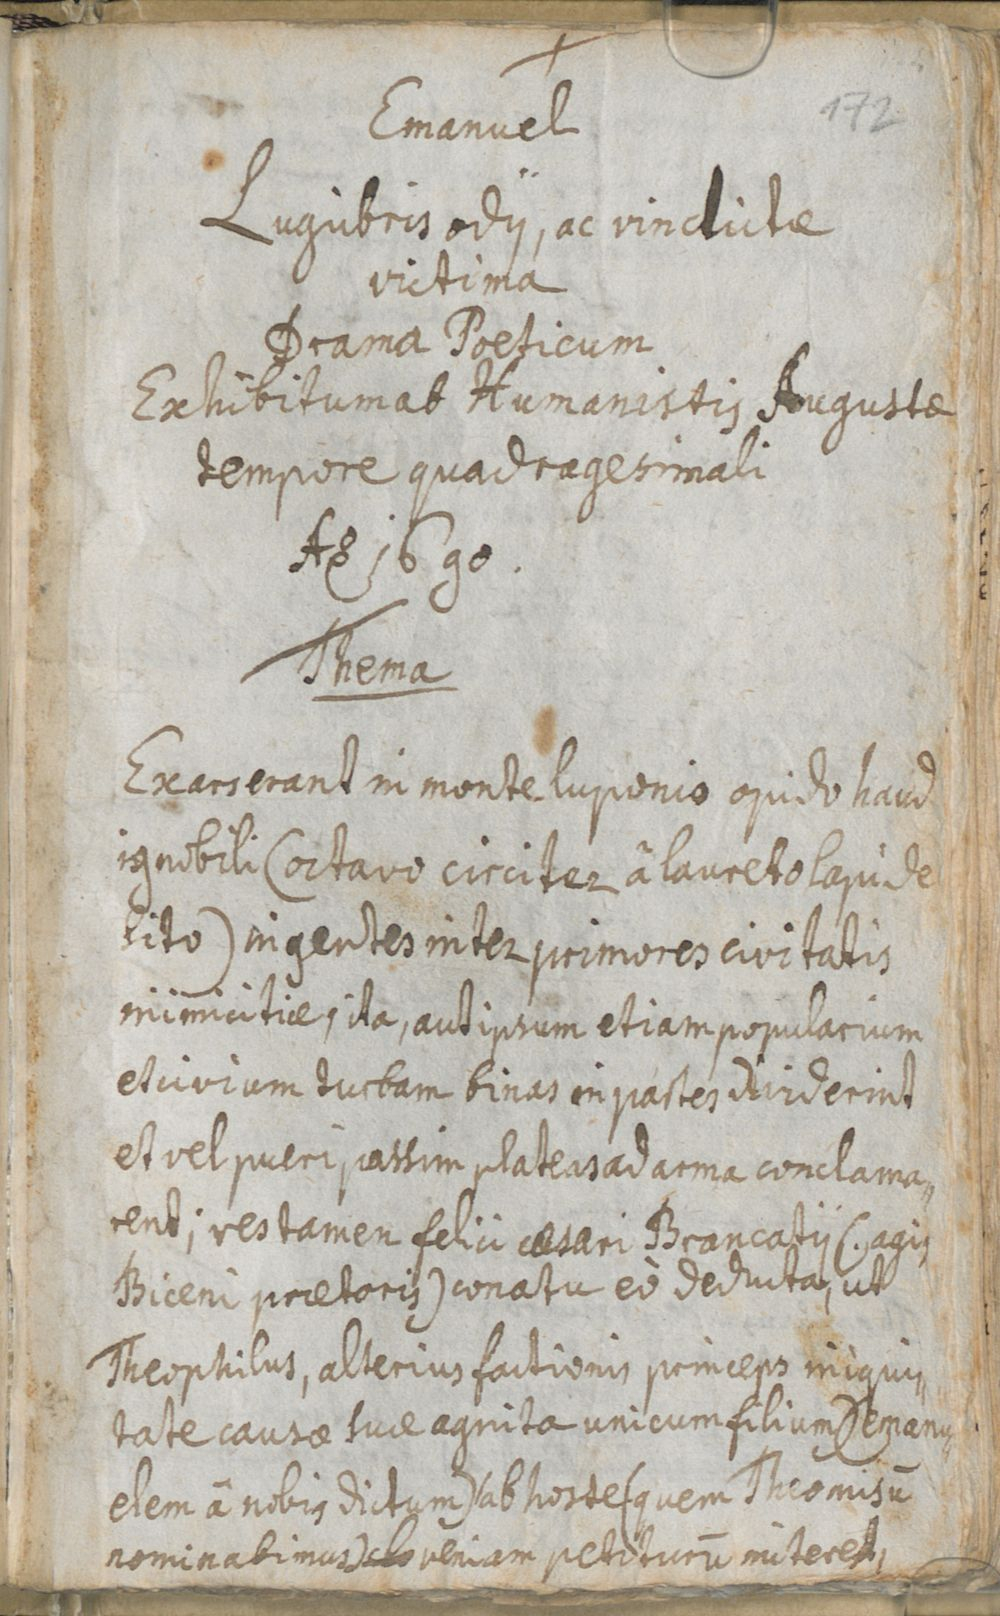 172
Emanuel
Lugubris odÿ, ac vindictæ
victima
Drama Poeticum
Exhibitum ab Humanistis Augustæ
tempore quadragesimali
Aº 1690.
Thema
Exarserant in monte luponio opido haud
ignobili (octavo circiter â laureto lapide
sito) ingentes inter primores civitatis
inimicitiæ, ita, aut ipsum etiam popularium
et civium turbam binas in partes dividerint
et vel pueri passim plateas ad arma conclama„
rent; res tamen felici cæsari Brancatÿ (.agis
Biceni prætoris) conatu eò deducta, ut
Theophilus, alterius factionis princeps iniqui„
tate causæ suæ agnita unicum filium (emanu„
elem â nobis dictum) ab hoste (quem Theomisū
nominabimus) veniam petiturū miteret,